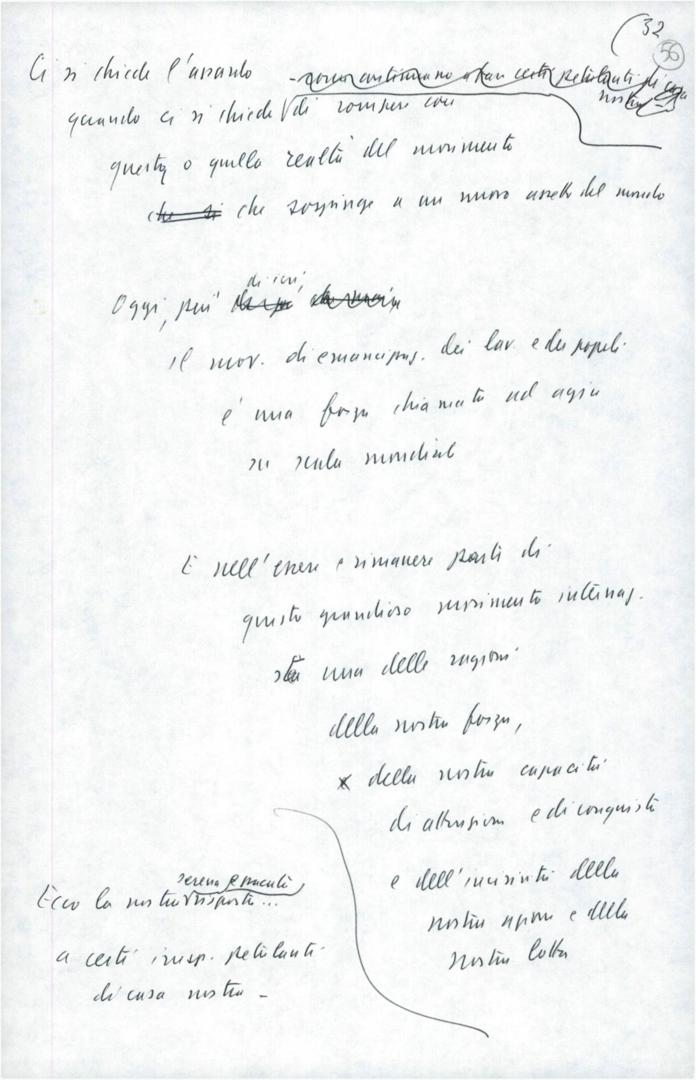 32
56
Ci si chiede l'assurdo
quando ci si chiede di rompere con
questa o quella realtà del movimento
che si che sospinge a un nuovo assetto del mondo
di ieri,
Oggi, più
il mov. di emancipaz. dei lav. e dei popoli
è una forza chiamata ad agire
su scala mondiale
E nell'essere e rimanere parte di
questo grandioso movimento internaz.
sta una delle ragioni
della nostra forza,
della nostra capacità
di attrazione e di conquista
e dell'incisività della
nostra azione e della
nostra lotta
serena e pacata
Ecco la nostra risposta...
a certi insop. petulanti
di casa nostra -